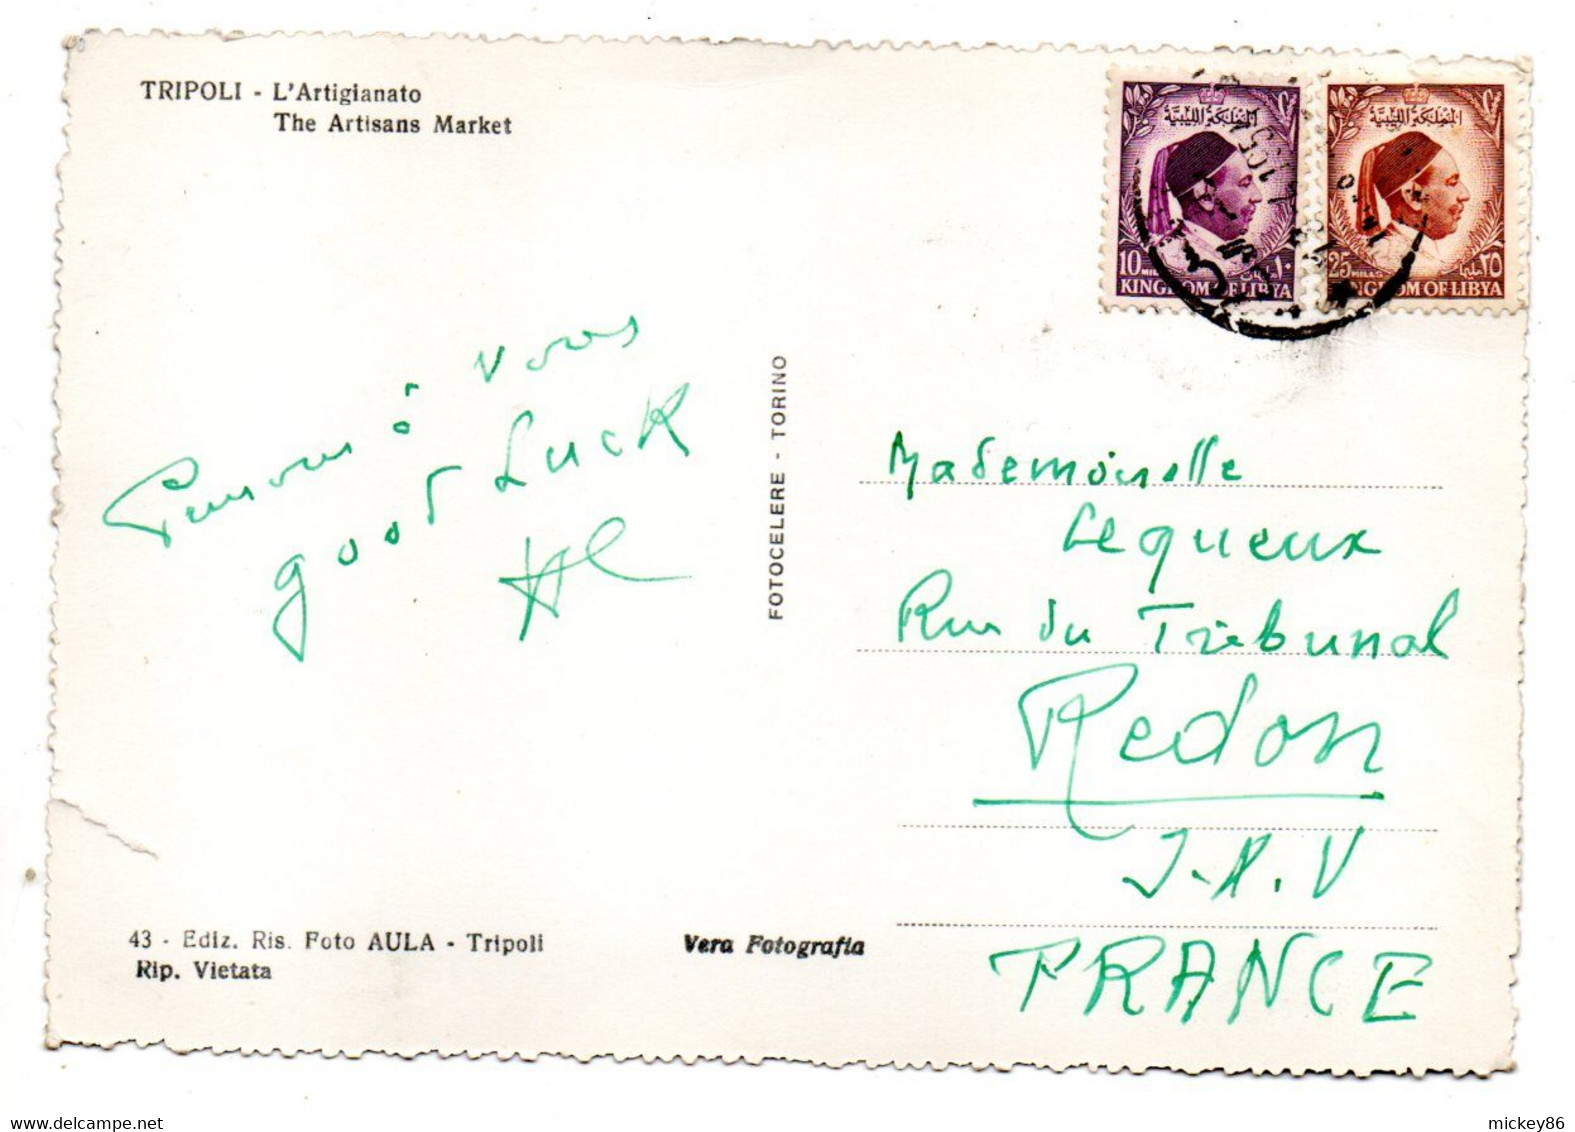 TRIPOLI - L'Artigianato
The Artisans Market
المملكة الليبية
10 MILLS ١٠
KINGDOM OF LIBYA
المملكة الليبية
25 MILLS مليم ٢٥
KINGDOM OF LIBYA
Pensons à vous
good Luck
FOTOCELERE - TORINO
Mademoiselle
Lequeux
Rue du Tribunal
Redon
I.&.V
FRANCE
43 - Ediz. Ris. Foto AULA - Tripoli
Rip. Vietata
Vera Fotografia
www.delcampe.net
mickey86